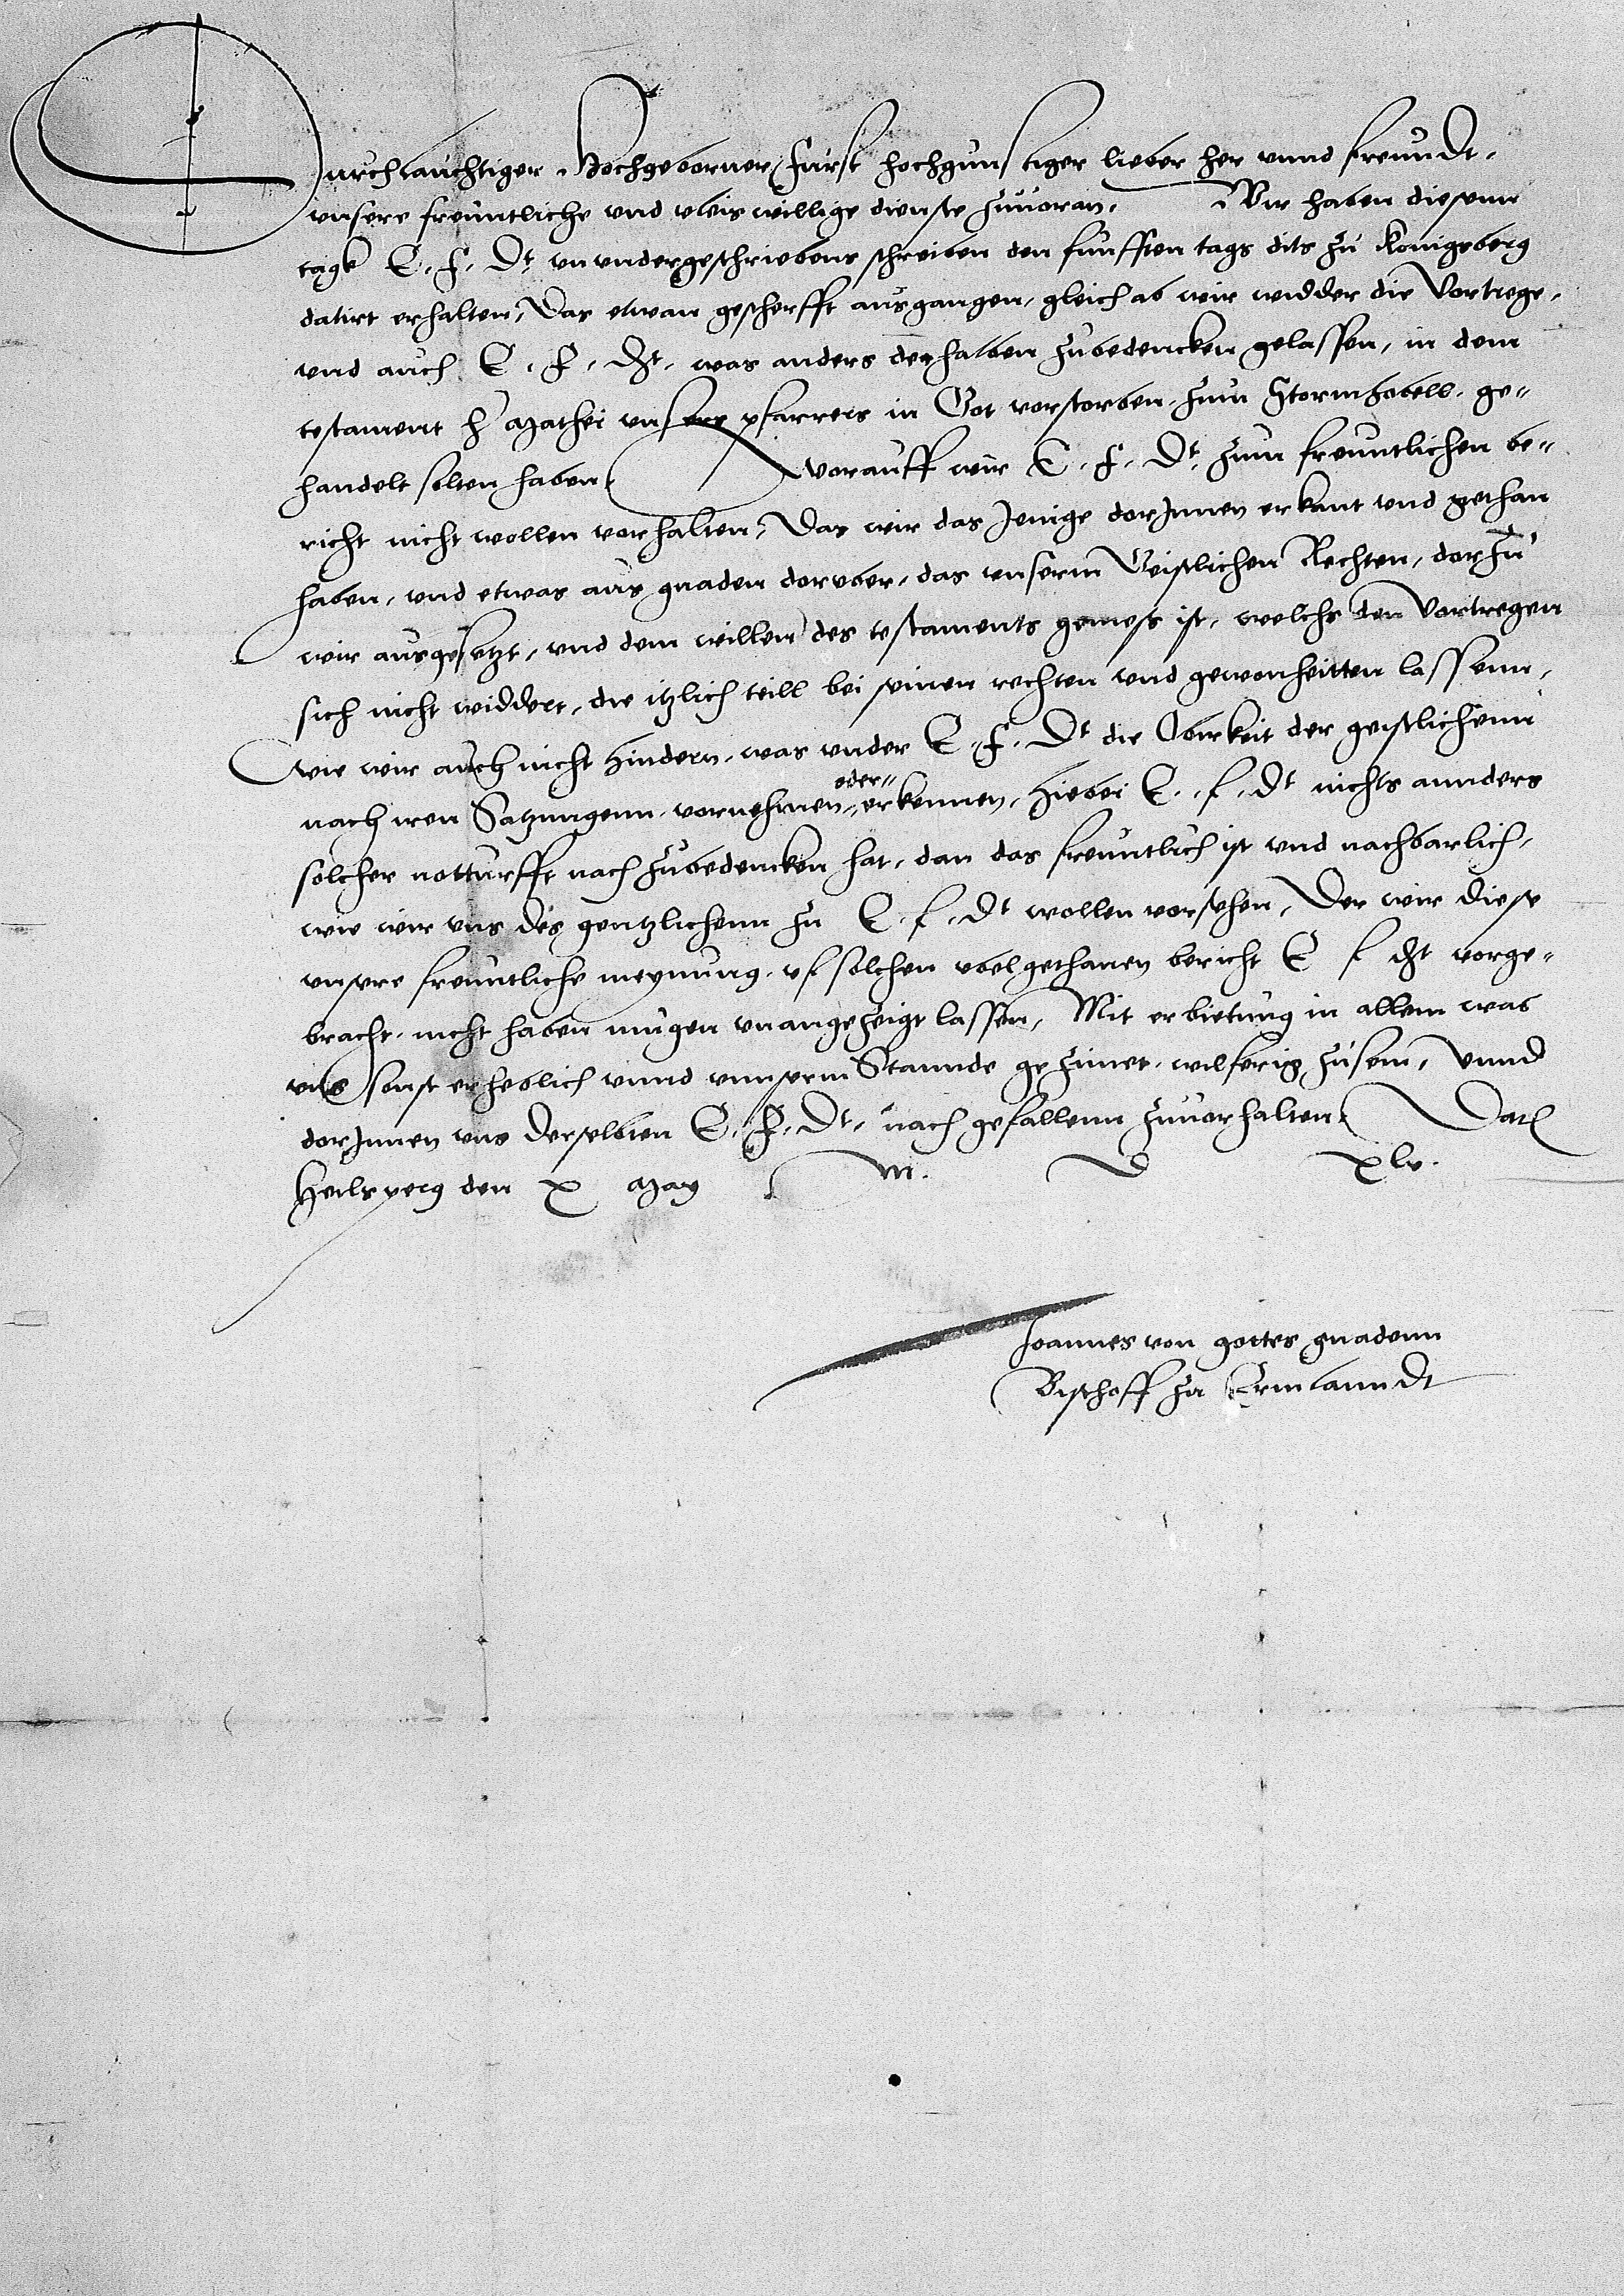 Durchlauchtiger Hochgeborner Furst hochgunstiger lieber her vnnd freundt,
vnsere freuntliche vnd vleis willige dienste zuuoran, Wir haben diesenn
tagk E. F. Dt vnundergeschriebens schreiben den funfften tags dits zu Konigsberg
datirt erhalten, Das etwan gescherfft ausgangen, gleich ab wir widder die Vortrege,
vnd auch E. F. Dt. was anders derhalben zubedencken gelassen, in dem
testament h Mathei vnsers pfarrers in Got vorstorben zum Stormhobell ge-
handelt solten haben, Worauff wir E. F. Dt zum freuntlichen be-
richt nicht wollen vorhalten, Das wir das Jenige dorJnnen erkant vnd gethan
haben, vnd etwas aus gnaden doruber, das vnserm Geistlichen Rechten, dorzu
wir ausgesetzt, vnd dem willen des testaments gemess ist, welchs den Vortregen
sich nicht widdert, die itzlich teill bei seinen rechten vnd gewonheitten lassenn,
Wie wir auch nicht hindern, was vnder E. F. Dt die Obirkeit der geistlichenn
nach iren Satzungenn vornehmen oder erkennen, Hiebei E. f. Dt nichts annders
solcher notturfft nach zubedencken hat, dan das freuntlich ist vnd nachbarlich,
wie wir vns des gentzlichenn zu E. f. Dt wollen vorsehen, Der wir diese
vnsere freuntliche meynung vf solchen vbel gethanen bericht E f dt vorge-
bracht, nicht haben mugen vnangezeigt lassen, Mit erbietung in allem was
vns sonst erheblich vnnd vnnserm Stannde gezimet, wilferig zusein, Vnnd
dorJnnen vns derselbien E. F. Dt. nach gefallenn zuuorhalten, Dat
Heilsperg den X May M. D xlv.
Joannes von gottes gnadenn
Bischoff zu Ermlanndt